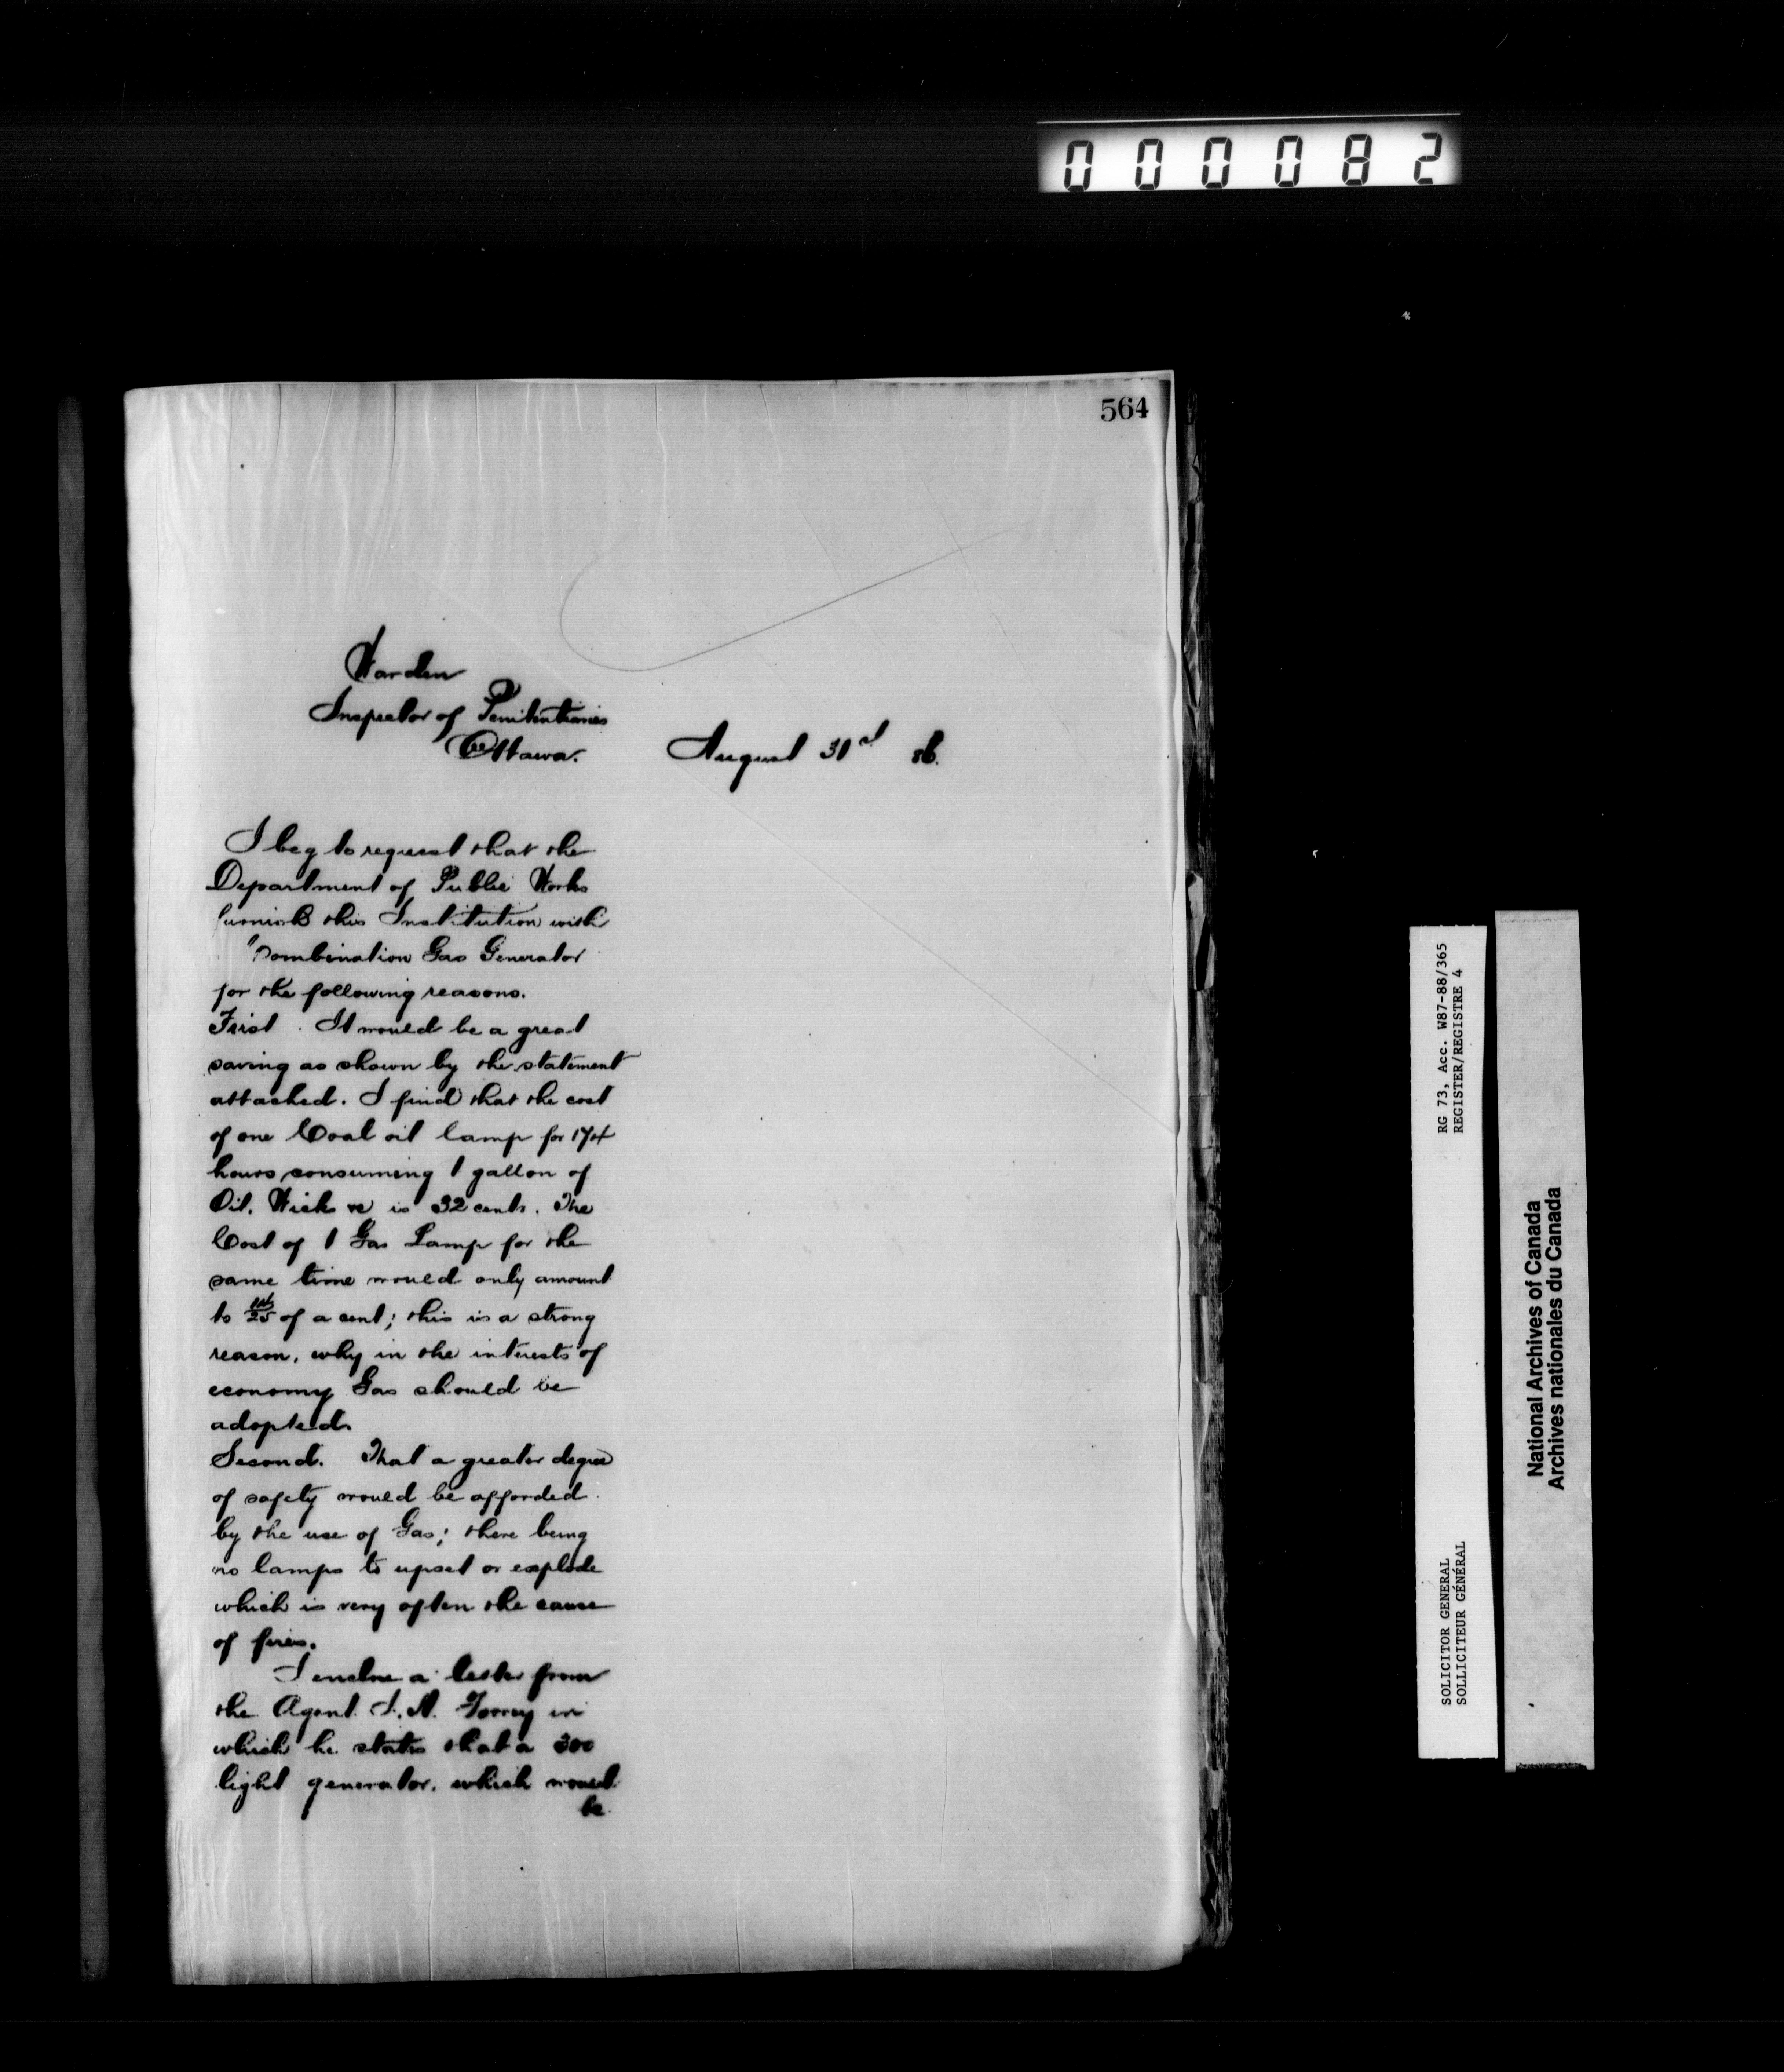 000082
564
Warden
Inspector of Penitentiaries
Ottawa.
August 31st 86.
I beg to request that the
Department of Public Works
furnish this Institution with
"Combination Gas Generator
for the following reasons.
First. It would be a great
saving as shown by the statement
attached. I find that the cost
of one Coal oil lamp for 174
hours consuming 1 gallon of
Oil. Wick &c is 32 cents. The
Cost of 1 Gas Lamp for the
same time would only amount
to of a cent; this is a strong
reason, why in the interests of
economy Gas should be
adopted.
Second. That a greater degree
of safety would be afforded
by the use of Gas; there being
no lamps to upset or explode
which is very often the cause
of fires.
I enclose a letter from
the Agent. in
which he states that a 300
light generator, which would
be
RG 73, Acc. W87-88/365
REGISTER/REGISTRE 4
SOLICITOR GENERAL
SOLLICITEUR GÉNÉRAL
National Archives of Canada
Archives nationales du Canada